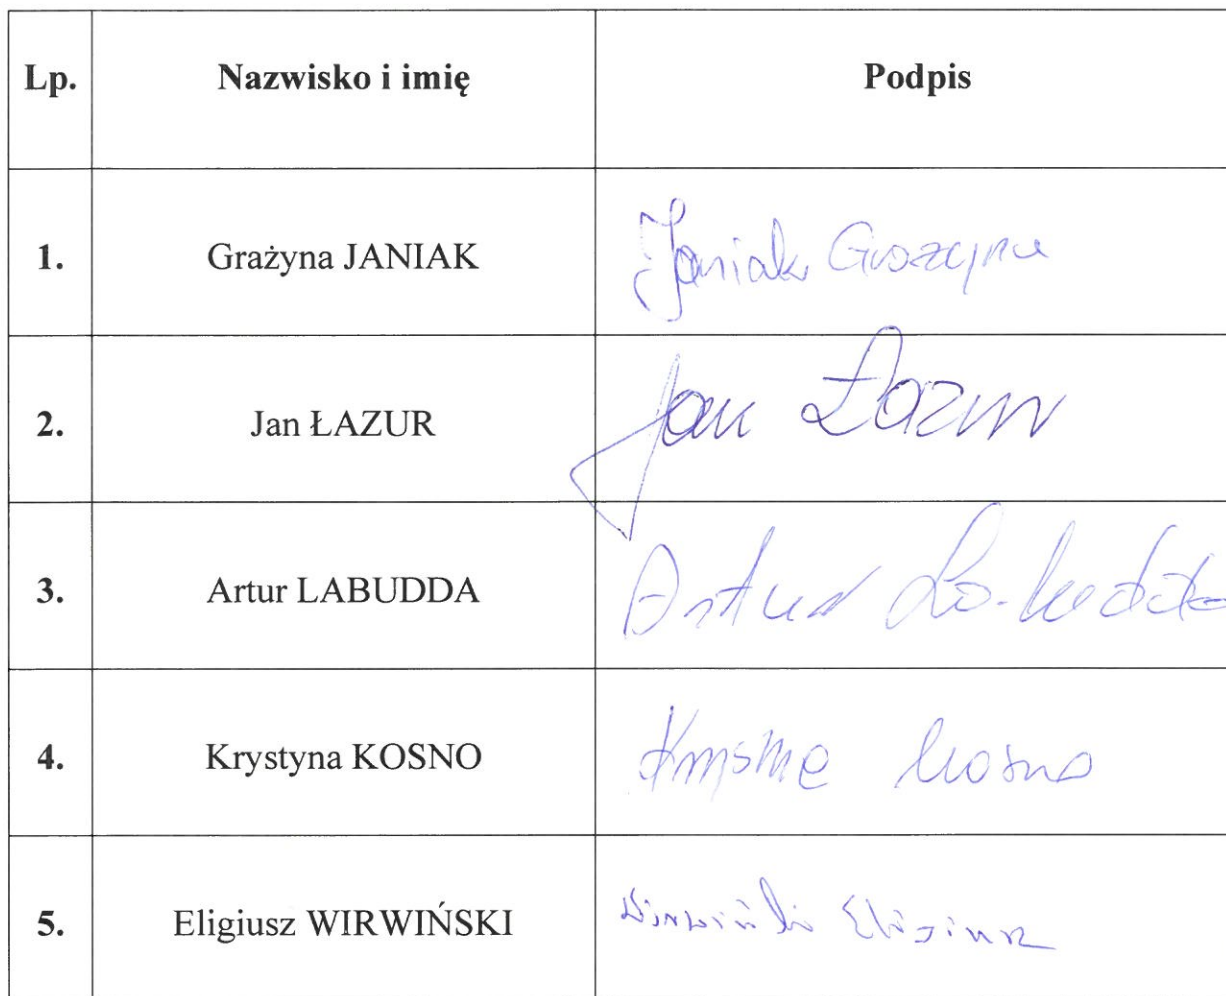 Lp. Nazwisko i imię Podpis
1. Grażyna JANIAK Janiak Grażyna
2. Jan ŁAZUR Jan Łazur
3. Artur LABUDDA Artur Labudda
4. Krystyna KOSNO Krystyna Kosno
5. Eligiusz WIRWIŃSKI Wirwiński Eligiusz